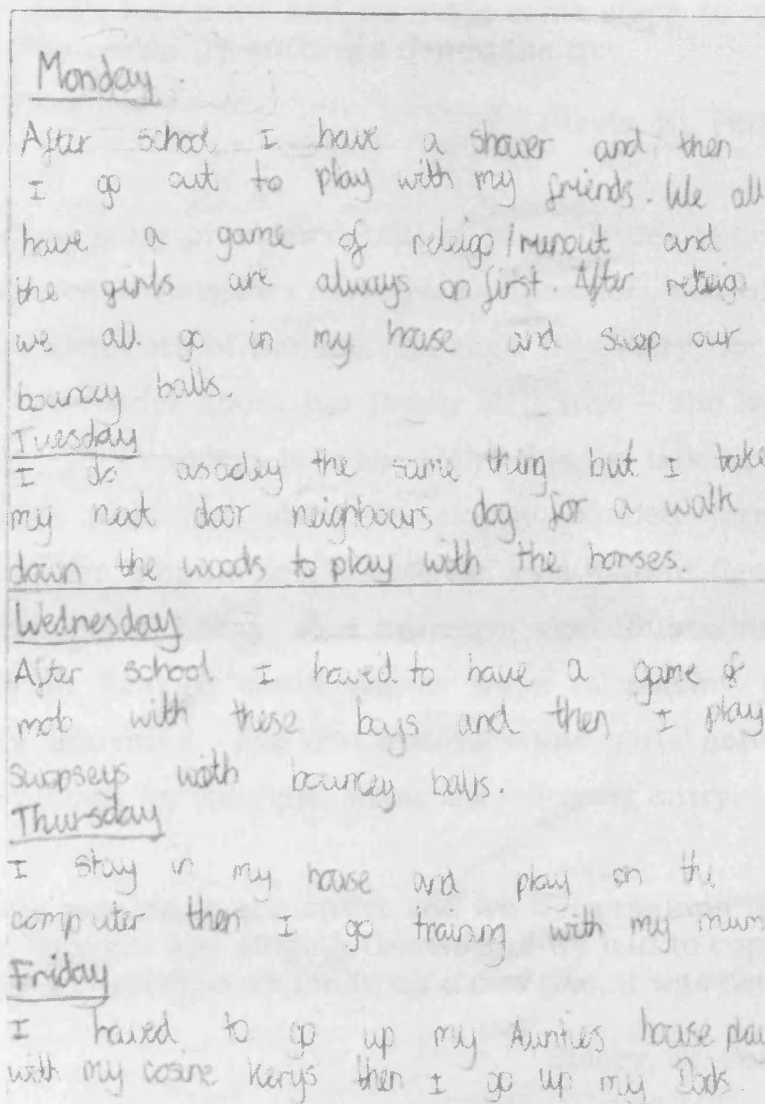 Monday
After school I have a shower and then
I go out to play with my friends. We all
have a game of releigo/runout and
the girls are always on first. After releigo
we all go in my house and swap our
bouncey balls.
Tuesday
I do asacley the same thing but I take
my next door neighbours dog for a walk
down the woods to play with the horses.
Wednesday
After school I haved to have a game of
mob with these boys and then I play
swopseys with bouncey balls.
Thursday
I stay in my house and play on the
computer then I go training with my mum
Friday
I haved to go up my Aunties house play
with my cosine Kerys then I go up my Dads.